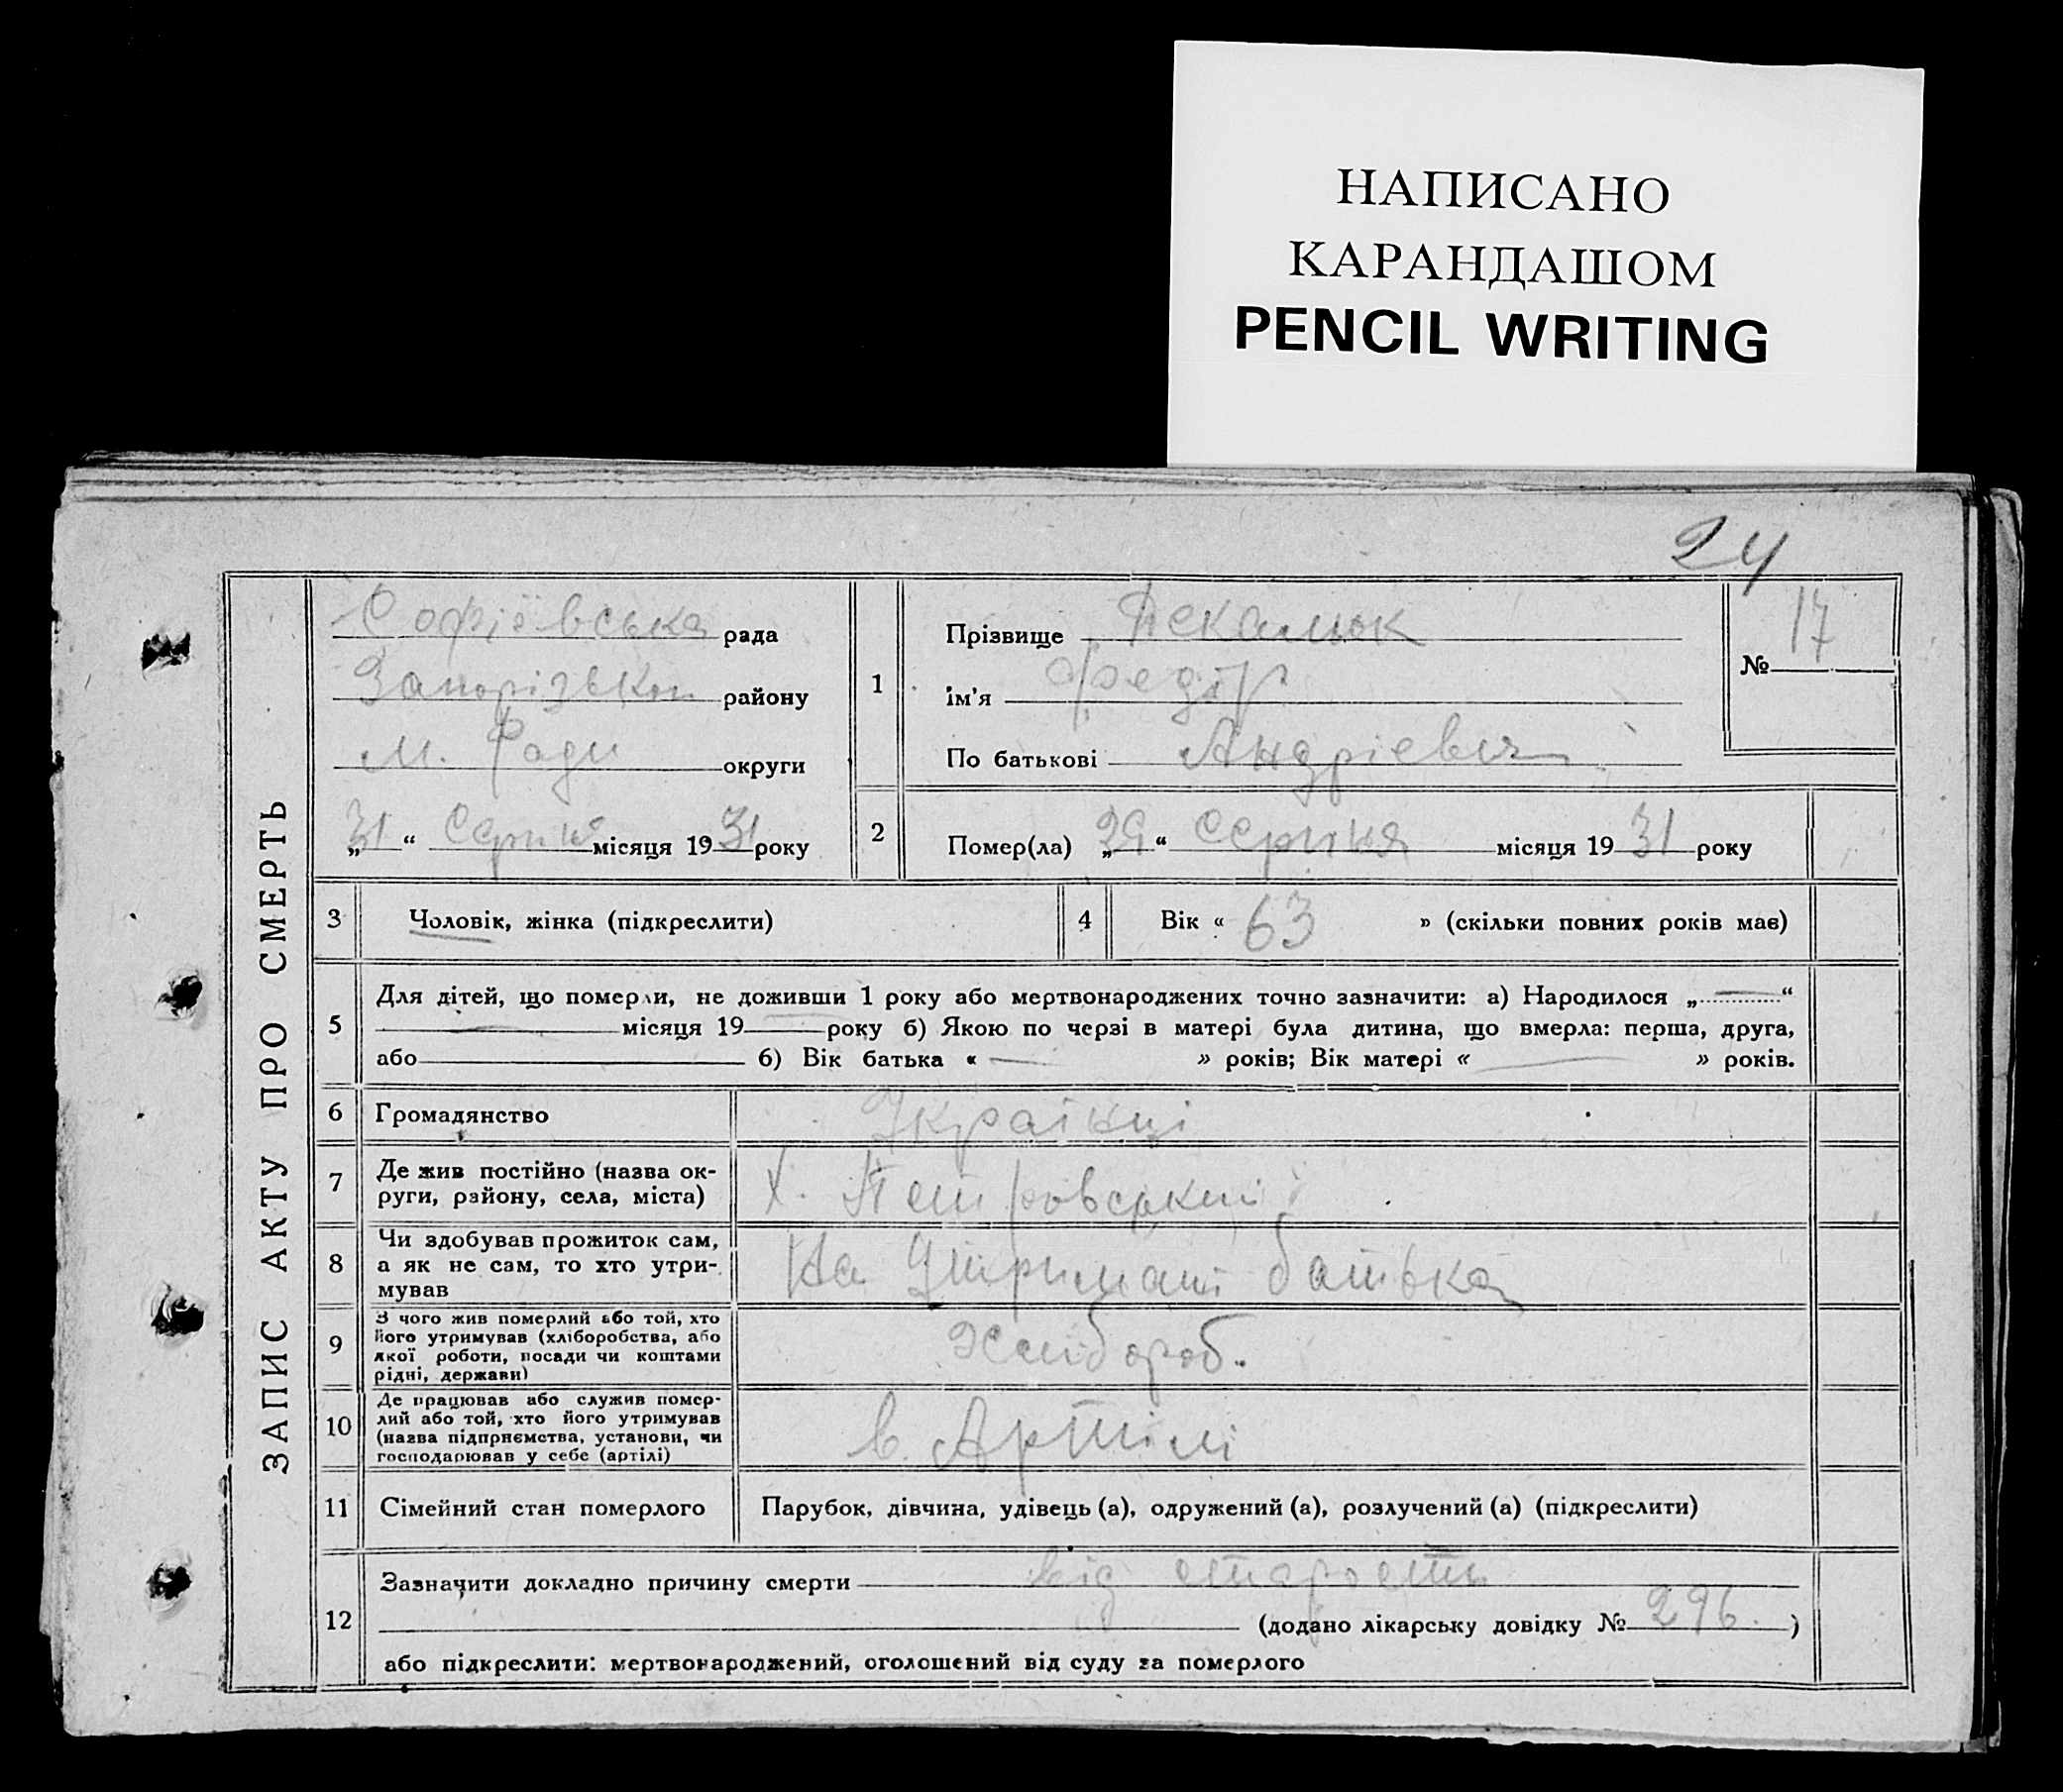 НАПИСАНО
КАРАНДАШОМ
PENCIL WRITING
24
ЗАПИС АКТУ ПРО СМЕРТЬ
Софіевська рада
Запорізькоі району
М. Ради округи
„31“ Серпня місяця 1931 року
1
Прізвище Пекалюк
ім'я Федір
По батькові Андрієвич
№ 17
2
Помер(ла) „29“ Серпня місяця 1931 року
3 Чоловік, жінка (підкреслити)
4 Вік « 63 » (скільки повних років має)
5
Для дітей, що померли, не доживши 1 року або мертвонароджених точно зазначити: а) Народилося „—“
— місяця 19— року б) Якою по черзі в матері була дитина, що вмерла: перша, друга,
або б) Вік батька « — » років; Вік матері « — » років.
6 Громадянство Украінці
7 Де жив постійно (назва ок-
руги, району, села, міста) Х. Петровський
8 Чи здобував прожиток сам,
а як не сам, то хто утри-
мував На Утримані батька
9 З чого жив померлий або той, хто
його утримував (хліборобства, або
якої роботи, посади чи коштами
рідні, держави) Хлибороб.
10 Де працював або служив помер-
лий або той, хто його утримував
(назва підприємства, установи, чи
господарював у себе (артілі) в Артілі
11 Сімейний стан померлого Парубок, дівчина, удівець (а), одружений (а), розлучений (а) (підкреслити)
12
Зазначити докладно причину смерти від старости
(додано лікарську довідку № 296.)
або підкреслити: мертвонароджений, оголошений від суду за померлого